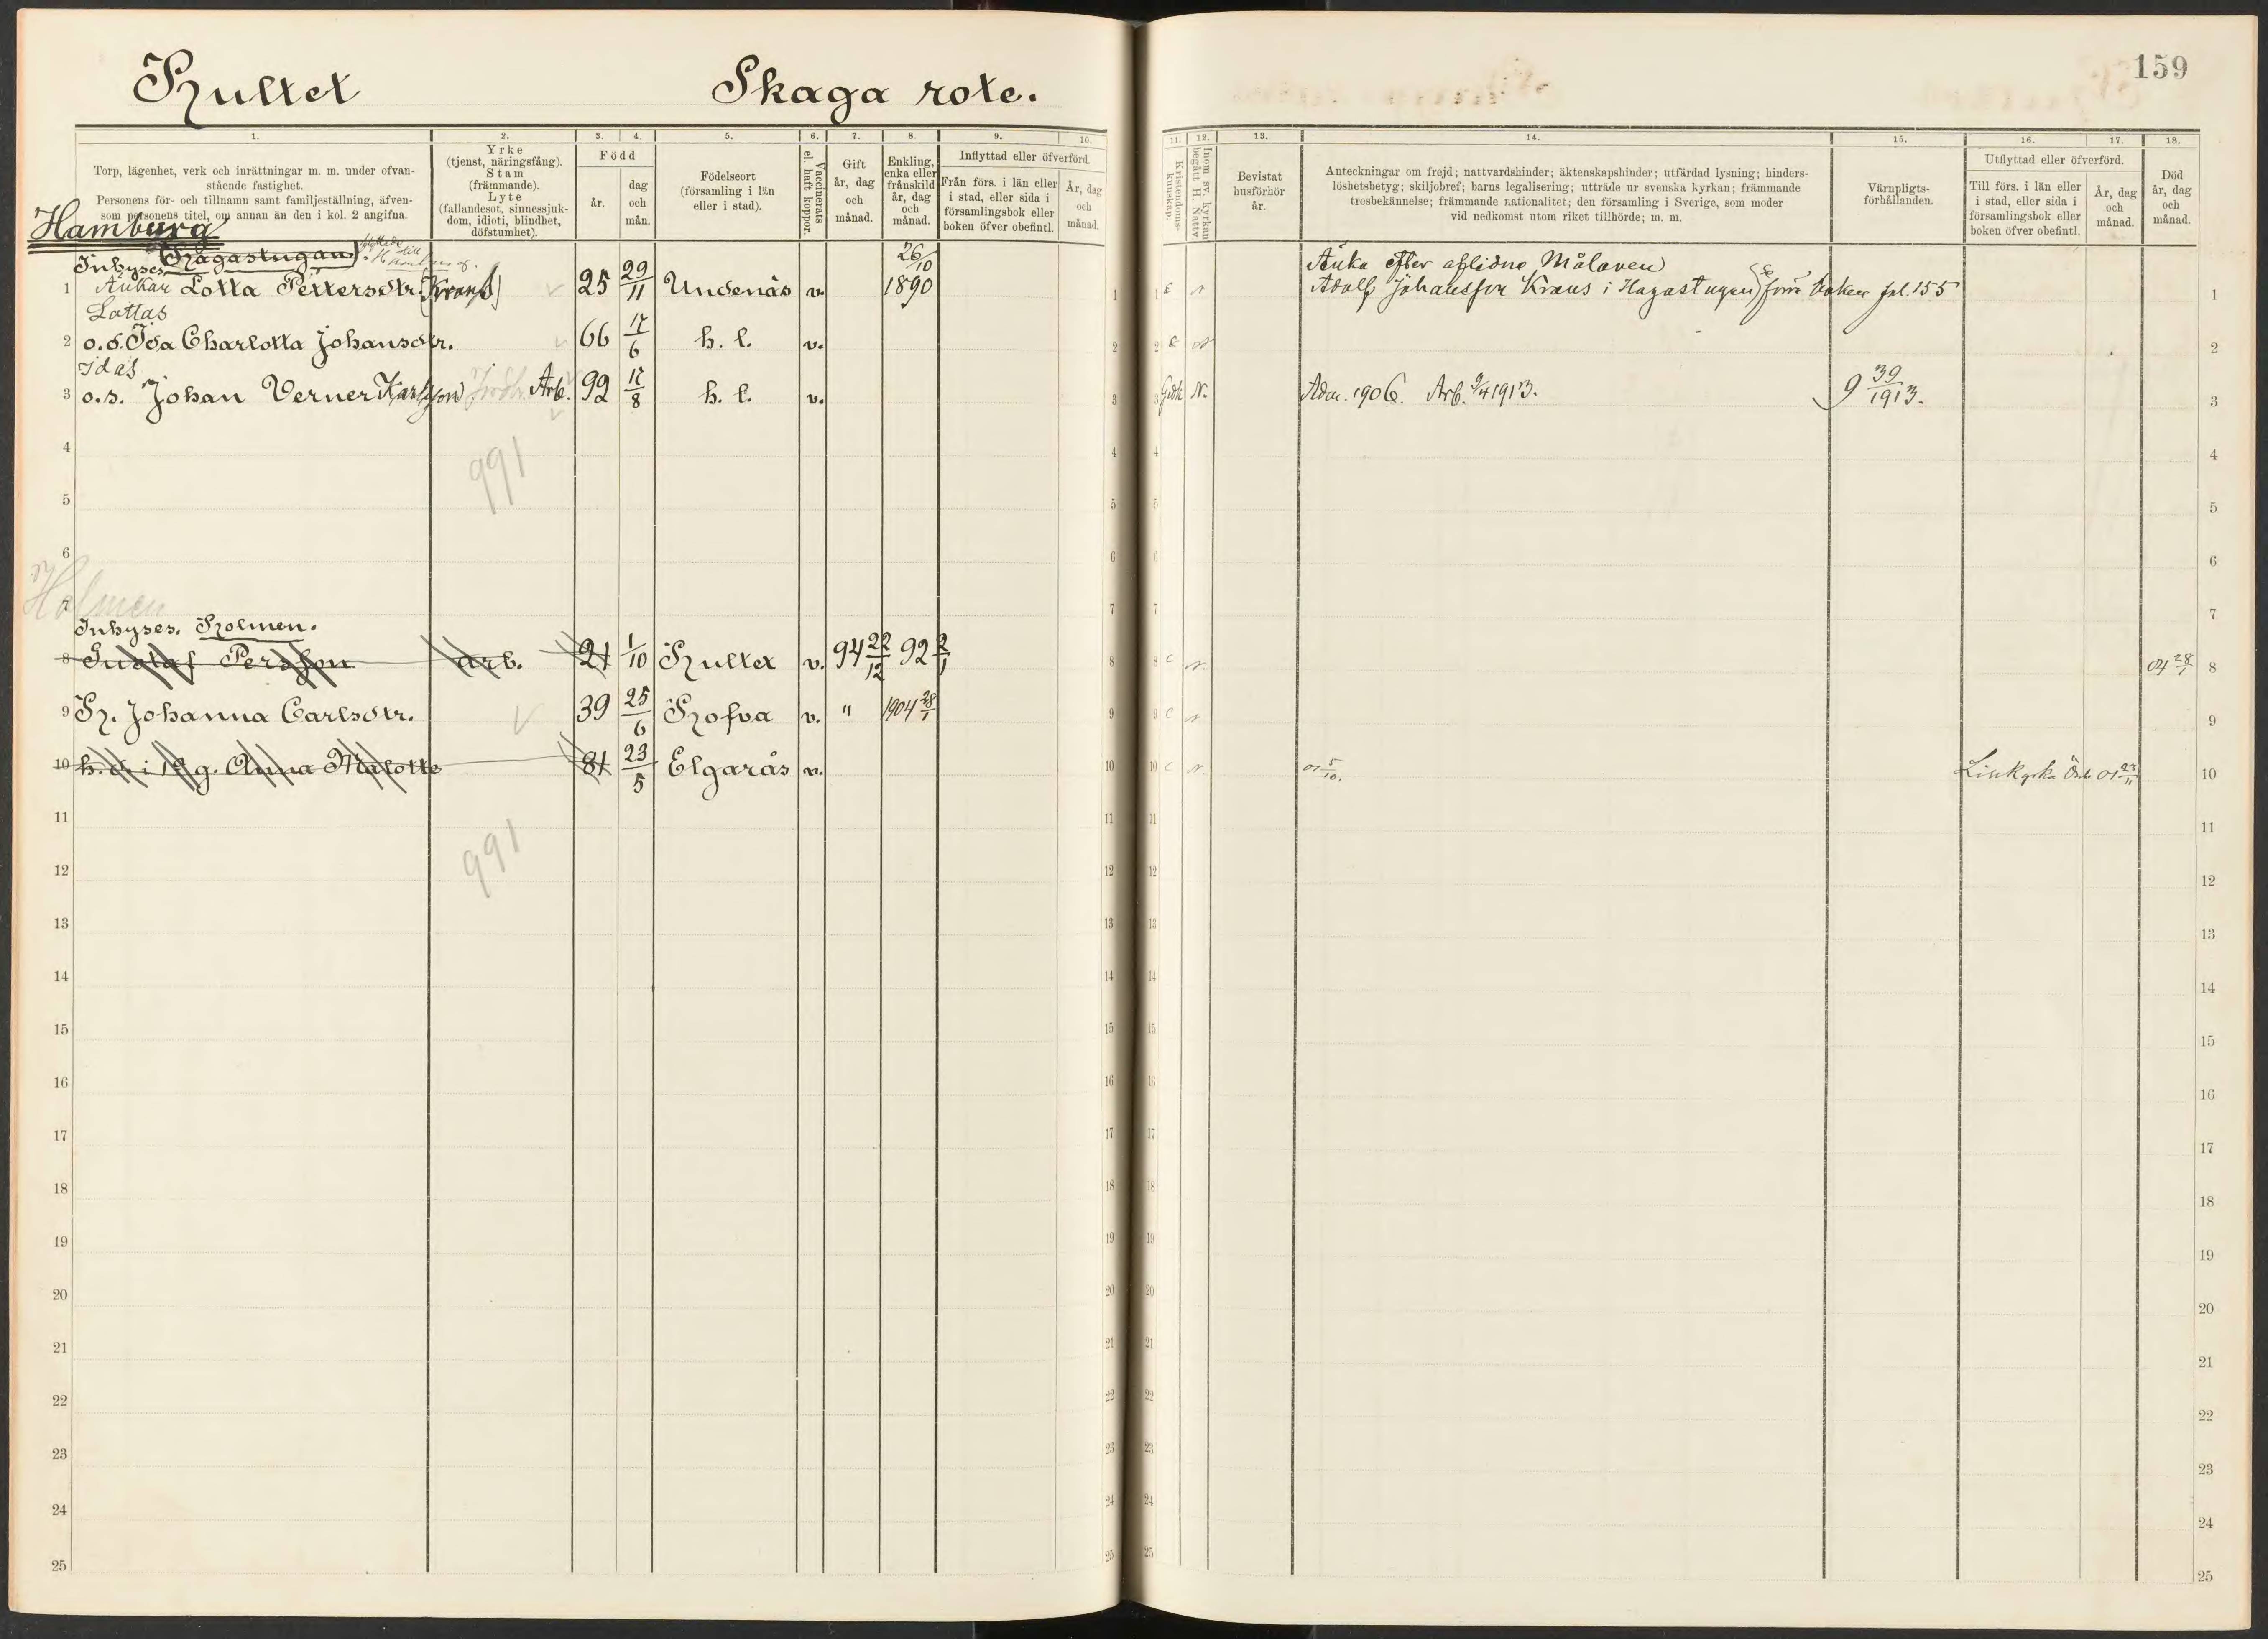 Hultet Skaga rote.
159
1. 2. 3. 4. 5. 6. 7. 8. 9. 10. 11. 12. 13. 14. 15. 16. 17. 18.
Torp, lägenhet, verk och inrättningar m. m. under ofvan-
stående fastighet.
Personens för- och tillnamn samt familjeställning, äfven-
som personens titel, om annan än den i kol. 2 angifna.
Yrke
(tjenst, näringsfång).
Stam
(främmande).
Lyte
(fallandesot, sinnessjuk-
dom, idioti, blindhet,
döfstumhet).
Född
år.
dag
och
mån.
Födelseort
(församling i län
eller i stad).
Vaccinerats
el. haft koppor.
Gift
år, dag
och
månad.
Enkling,
enka eller
frånskild
år, dag
och
månad.
Inflyttad eller öfverförd.
Från förs. i län eller
i stad, eller sida i
församlingsbok eller
boken öfver obefintl.
År, dag
och
månad.
Kristendoms-
kunskap.
Inom sv. kyrkan
begått H. Nattv
Bevistat
husförhör
år.
Anteckningar om frejd; nattvardshinder; äktenskapshinder; utfärdad lysning; hinders-
löshetsbetyg; skiljobref; barns legalisering; utträde ur svenska kyrkan; främmande
trosbekännelse; främmande nationalitet; den församling i Sverige, som moder
vid nedkomst utom riket tillhörde; m. m.
Värnpligts-
förhållanden.
Utflyttad eller öfverförd.
Till förs. i län eller
i stad, eller sida i
församlingsbok eller
boken öfver obefintl.
År, dag
och
månad.
Död
år, dag
och
månad.
Hamburg
Inhyses Hagastugan
1 Änkan Lotta Pettersdtr. 25 29/11 Undenäs v. 26/10 1890 Änka efter aflidne Målaren
Adolf Johansson Kraus i Hagastugan se förra boken fol. 155
Lottas
2 o.d. Ida Charlotta Johansdtr. 66 17/6 h. l. v.
Idas
3 o.s. Johan Verner Karlsson Arb. 99 17/8 h. l. v. Gdk N. Adm. 1906. Arb. 9/4 1913. 9 39/1913.
4
991
5
6
Holmen
7
Inhyses. Holmen.
8 Gustaf Persson arb. 21 1/10 Hultet v. 94 22/12 92 2/1 c N. 04 28/1
9 H. Johanna Carlsdtr. 39 25/6 Hofva v. " 1904 28/1 c N
10 h. d. i 1 g. Anna Malotte 81 23/5 Elgarås v. c N. 01 5/10. 01 22/11
11
991
12
13
14
15
16
17
18
19
20
21
22
23
24
25